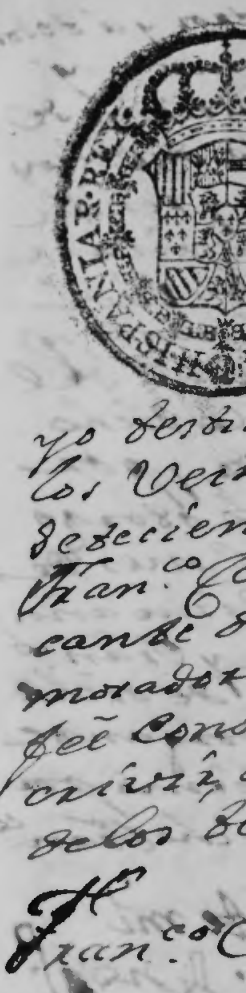 HISPANIAR·REX·
yo testi
los Vein
setecien
Fran.co Ca
cante d
morador
feé cono
crivir,
delos te
Fran.co C